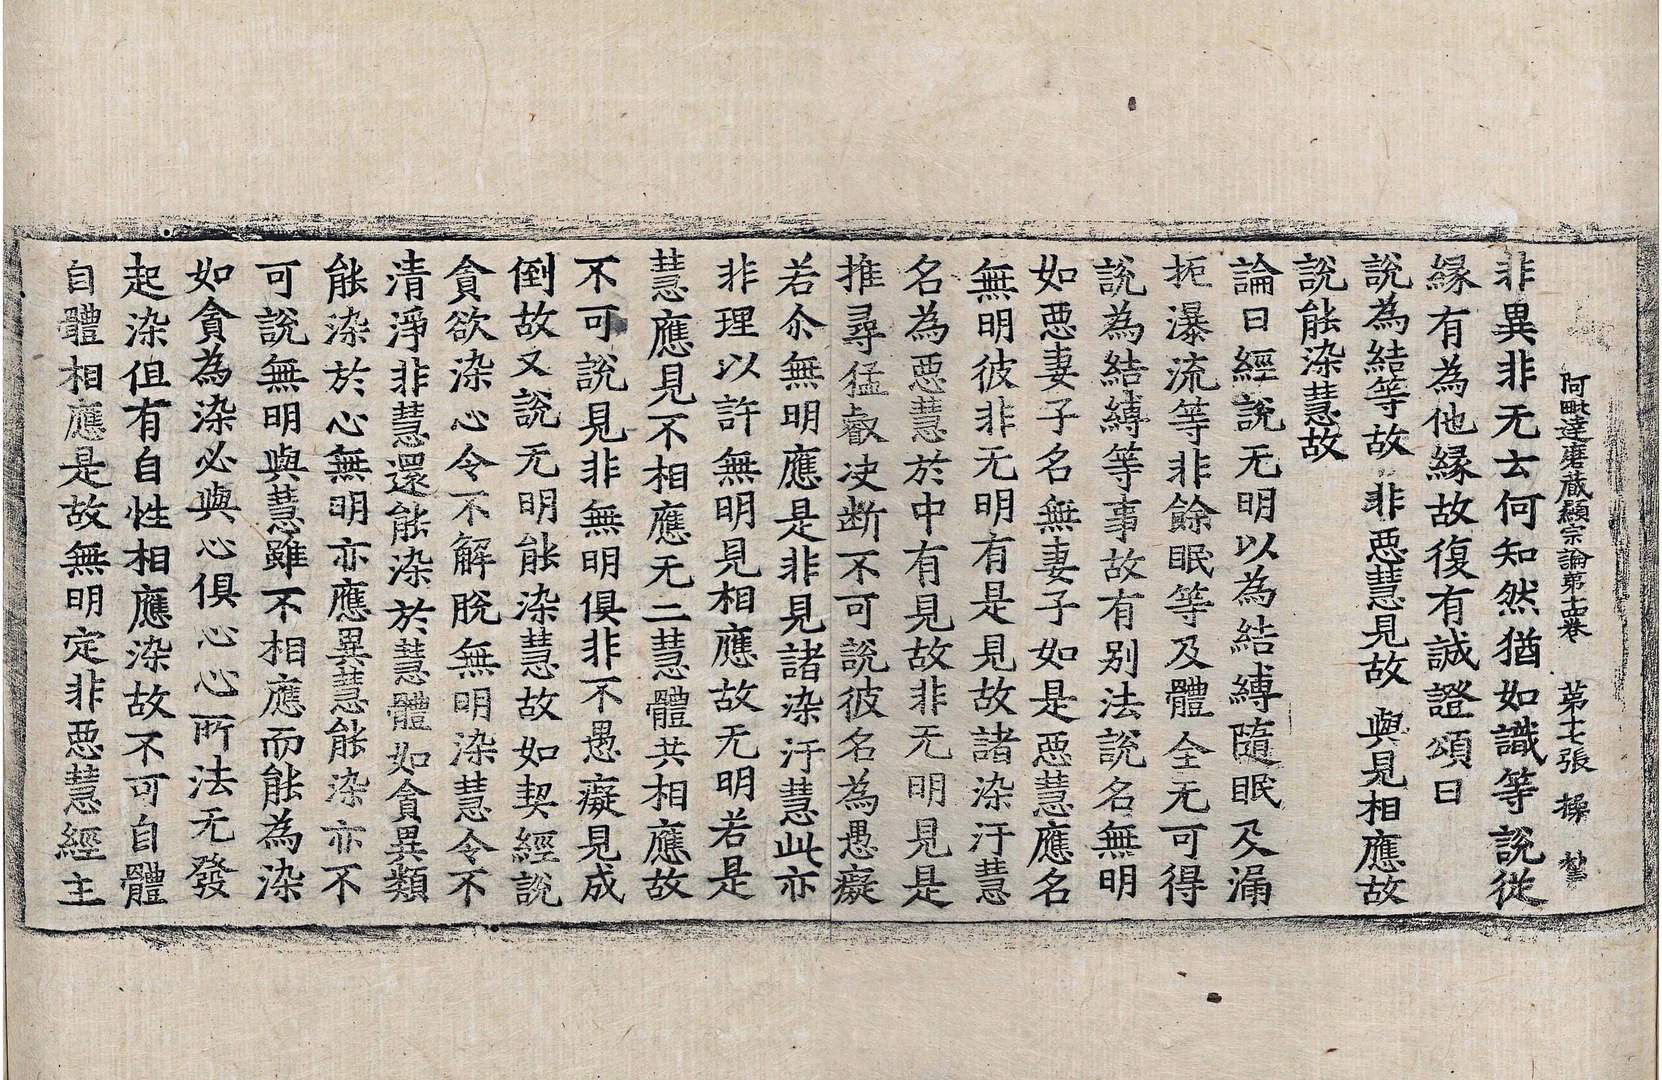 阿毗達磨蔵顯宗論第十四卷 第十七張 操
非異非无云何知然猶如識等說從
緣有為他緣故復有誠證頌曰
說為結等故 非惡慧見故 與見相應故
說能染慧故
論曰經說无明以為結縛隨眠及漏
扼瀑流等非餘眠等及體全无可得
說為結縛等事故有別法說名無明
如惡妻子名無妻子如是惡慧應名
無明彼非无明有是見故諸染汙慧
名為惡慧於中有見故非无明見是
推尋猛叡决断不可說彼名為愚癡
若尒無明應是非見諸染汙慧此亦
非理以許無明見相應故无明若是
慧應見不相應无二慧體共相應故
不可說見非無明俱非不愚癡見成
倒故又說无明能染慧故如契經說
貪欲染心令不解脫無明染慧令不
清淨非慧還能染於慧體如貪異類
能染於心無明亦應異慧能染亦不
可說無明與慧雖不相應而能為染
如貪為染必與心俱心心所法无發
起染但有自性相應染故不可自體
自體相應是故無明定非惡慧經主